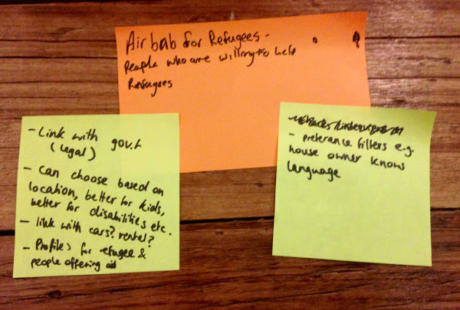 Airbab for Refugees -
People who are willing to help
Refugees
- Link with gov.t
(legal)
- Can choose based on
location, better for kids,
better for disabilities etc.
- link with cars? rental?
- Profiles for refugee &
people offering aid
- preferance filters e.g.
house owner knows
language